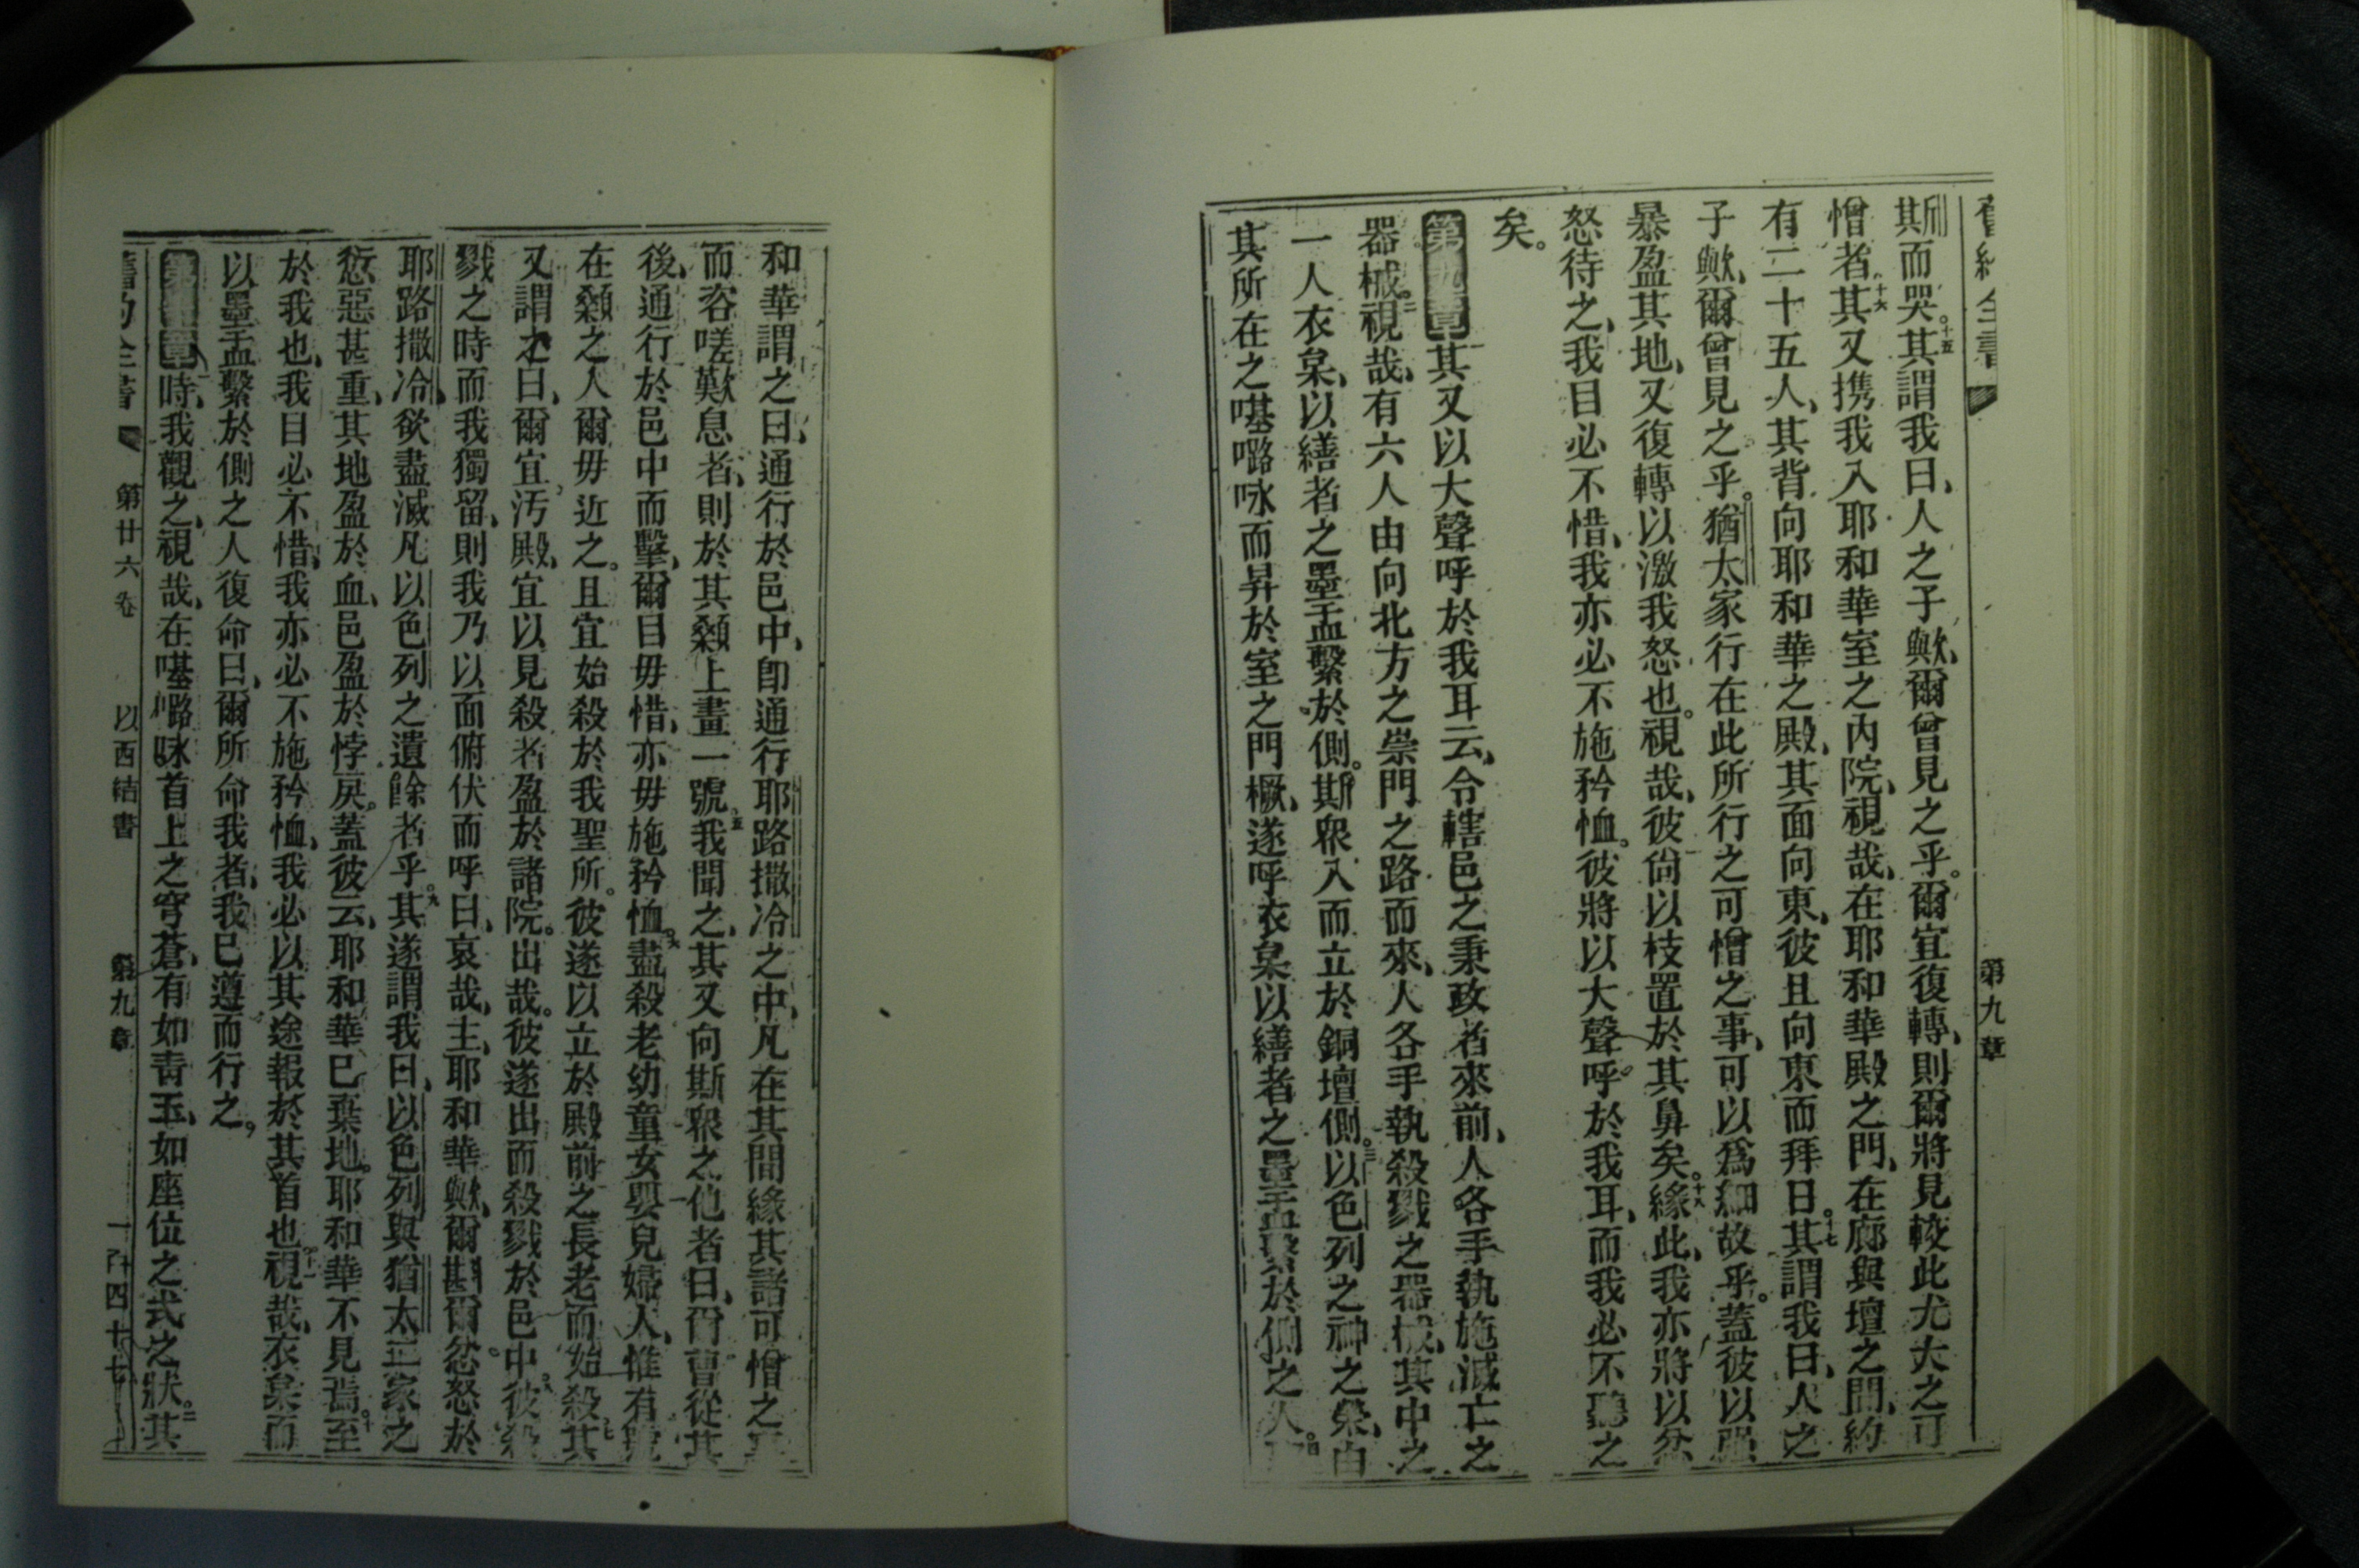 舊約全書 第九章
斯而哭。十五其謂我曰、人之子歟、爾曾見之乎。爾宜復轉、則爾將見較此尤大之可
憎者。十六其又携我入耶和華室之內院、視哉、在耶和華殿之門、在廊與壇之間、約
有二十五人、其背向耶和華之殿、其面向東、彼且向東而拜日。十七其謂我曰、人之
子歟、爾曾見之乎。猶太家行在此所行之可憎之事、可以爲細故乎。蓋彼以强
暴盈其地、又復轉以激我怒也。視哉、彼尙以枝置於其鼻矣。十八緣此、我亦將以忿
怒待之、我目必不惜、我亦必不施矜恤。彼將以大聲呼於我耳、而我必不聽之
矣。
第九章其又以大聲呼於我耳云、令轄邑之秉政者來前、人各手執施滅亡之
器械。二視哉、有六人由向北方之崇門之路而來、人各手執殺戮之器械、其中之
一人衣枲、以繕者之墨盂繫於側。斯衆入而立於銅壇側。三以色列之神之榮、由
其所在之𠼻嚕咏而昇於室之門橛、遂呼衣枲以繕者之墨盂繫於側之人。四
和華謂之曰、通行於邑中、卽通行耶路撒冷之中、凡在其間緣其諸可憎之事
而咨嗟歎息者、則於其顙上畫一號。五我聞之、其又向斯衆之他者曰、爾曹從其
後、通行於邑中而擊、爾目毋惜、亦毋施矜恤。六盡殺老幼童女嬰兒婦人、惟有號
在顙之人爾毋近之。且宜始殺於我聖所。彼遂以立於殿前之長老而始殺其七
又謂之曰、爾宜汚殿、宜以見殺者盈於諸院。出哉。彼遂出而殺戮於邑中。八彼殺
戮之時而我獨留、則我乃以面俯伏而呼曰、哀哉、主、耶和華歟、爾斟爾忿怒於
耶路撒冷、欲盡滅凡以色列之遺餘者乎。九其遂謂我曰、以色列與猶太二家之
愆惡甚重、其地盈於血、邑盈於悖戾。蓋彼云、耶和華已棄地。耶和華不見焉。十至
於我也、我目必不惜、我亦必不施矜恤、我必以其途報於其首也。十一視哉、衣枲而
以墨盂繫於側之人復命曰、爾所命我者、我已遵而行之。
第十章時、我觀之、視哉、在𠼻嚕咏首上之穹蒼、有如靑玉、如座位之式之狀。二其
舊約全書 第廿六卷 以西結書 第九章 一千四十七